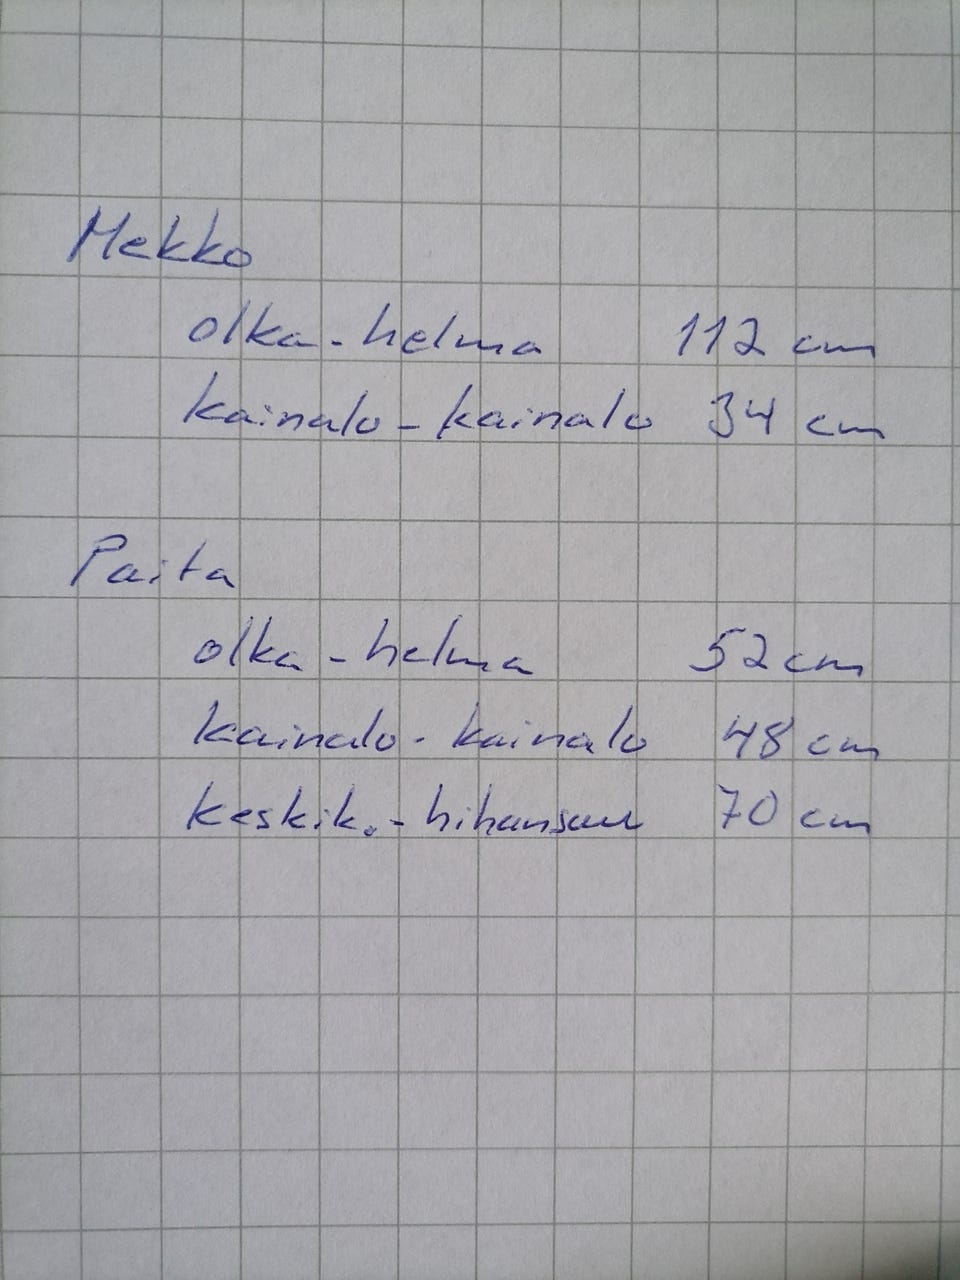 Mekko
olka-helma 112 cm
kainalo-kainalo 34 cm
Paita
olka-helma 52 cm
kainalo-kainalo 48 cm
keskik.-hihansuu 70 cm